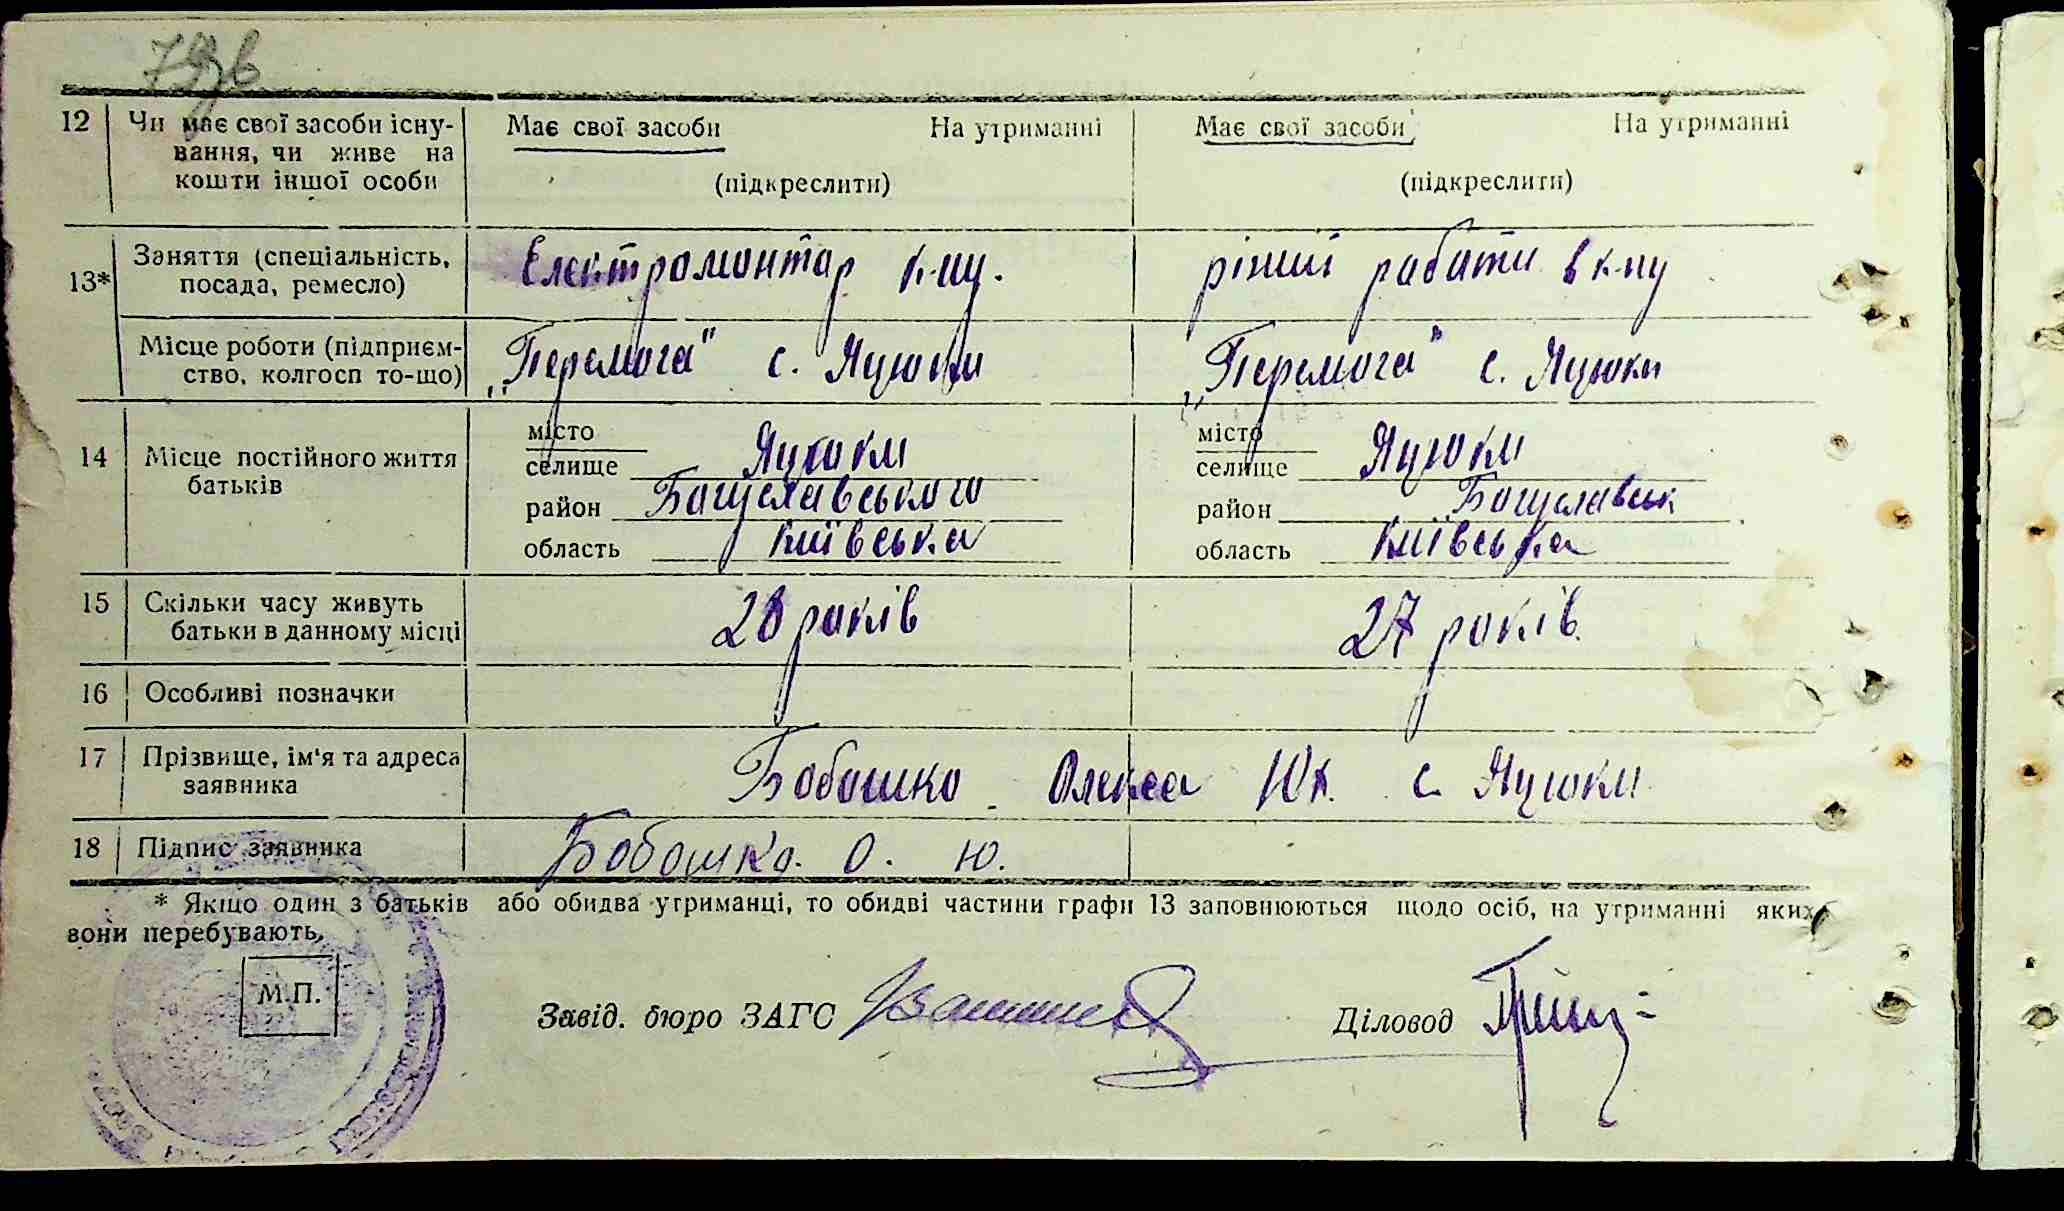 79зв
12 Чи має свої засоби існу- Має свої засоби На утриманні Має свої засоби На утриманні
вання, чи живе на
кошти іншої особи (підкреслити) (підкреслити)
13* Заняття (спеціальність, Електромонтар к-пу. різній работи в к-пу
посада, ремесло)
Місце роботи (підприєм- „Перемога" с. Яцюки „Перемога" с. Яцюки
ство, колгосп то-що)
14 Місце постійного життя місто місто
батьків селище Яцюки селище Яцюки
район Богуславського район Богуславськ
область київська область київська
15 Скільки часу живуть 28 років 27 років.
батьки в данному місці
16 Особливі позначки
17 Прізвище, ім'я та адреса Бобошко Олекса Юх. с. Яцюки
заявника
18 Підпис заявника Бобошко. О. Ю.
* Якщо один з батьків або обидва утриманці, то обидві частини графи 13 заповнюються щодо осіб, на утриманні яких
вони перебувають.
М.П.
Завід. бюро ЗАГС Діловод